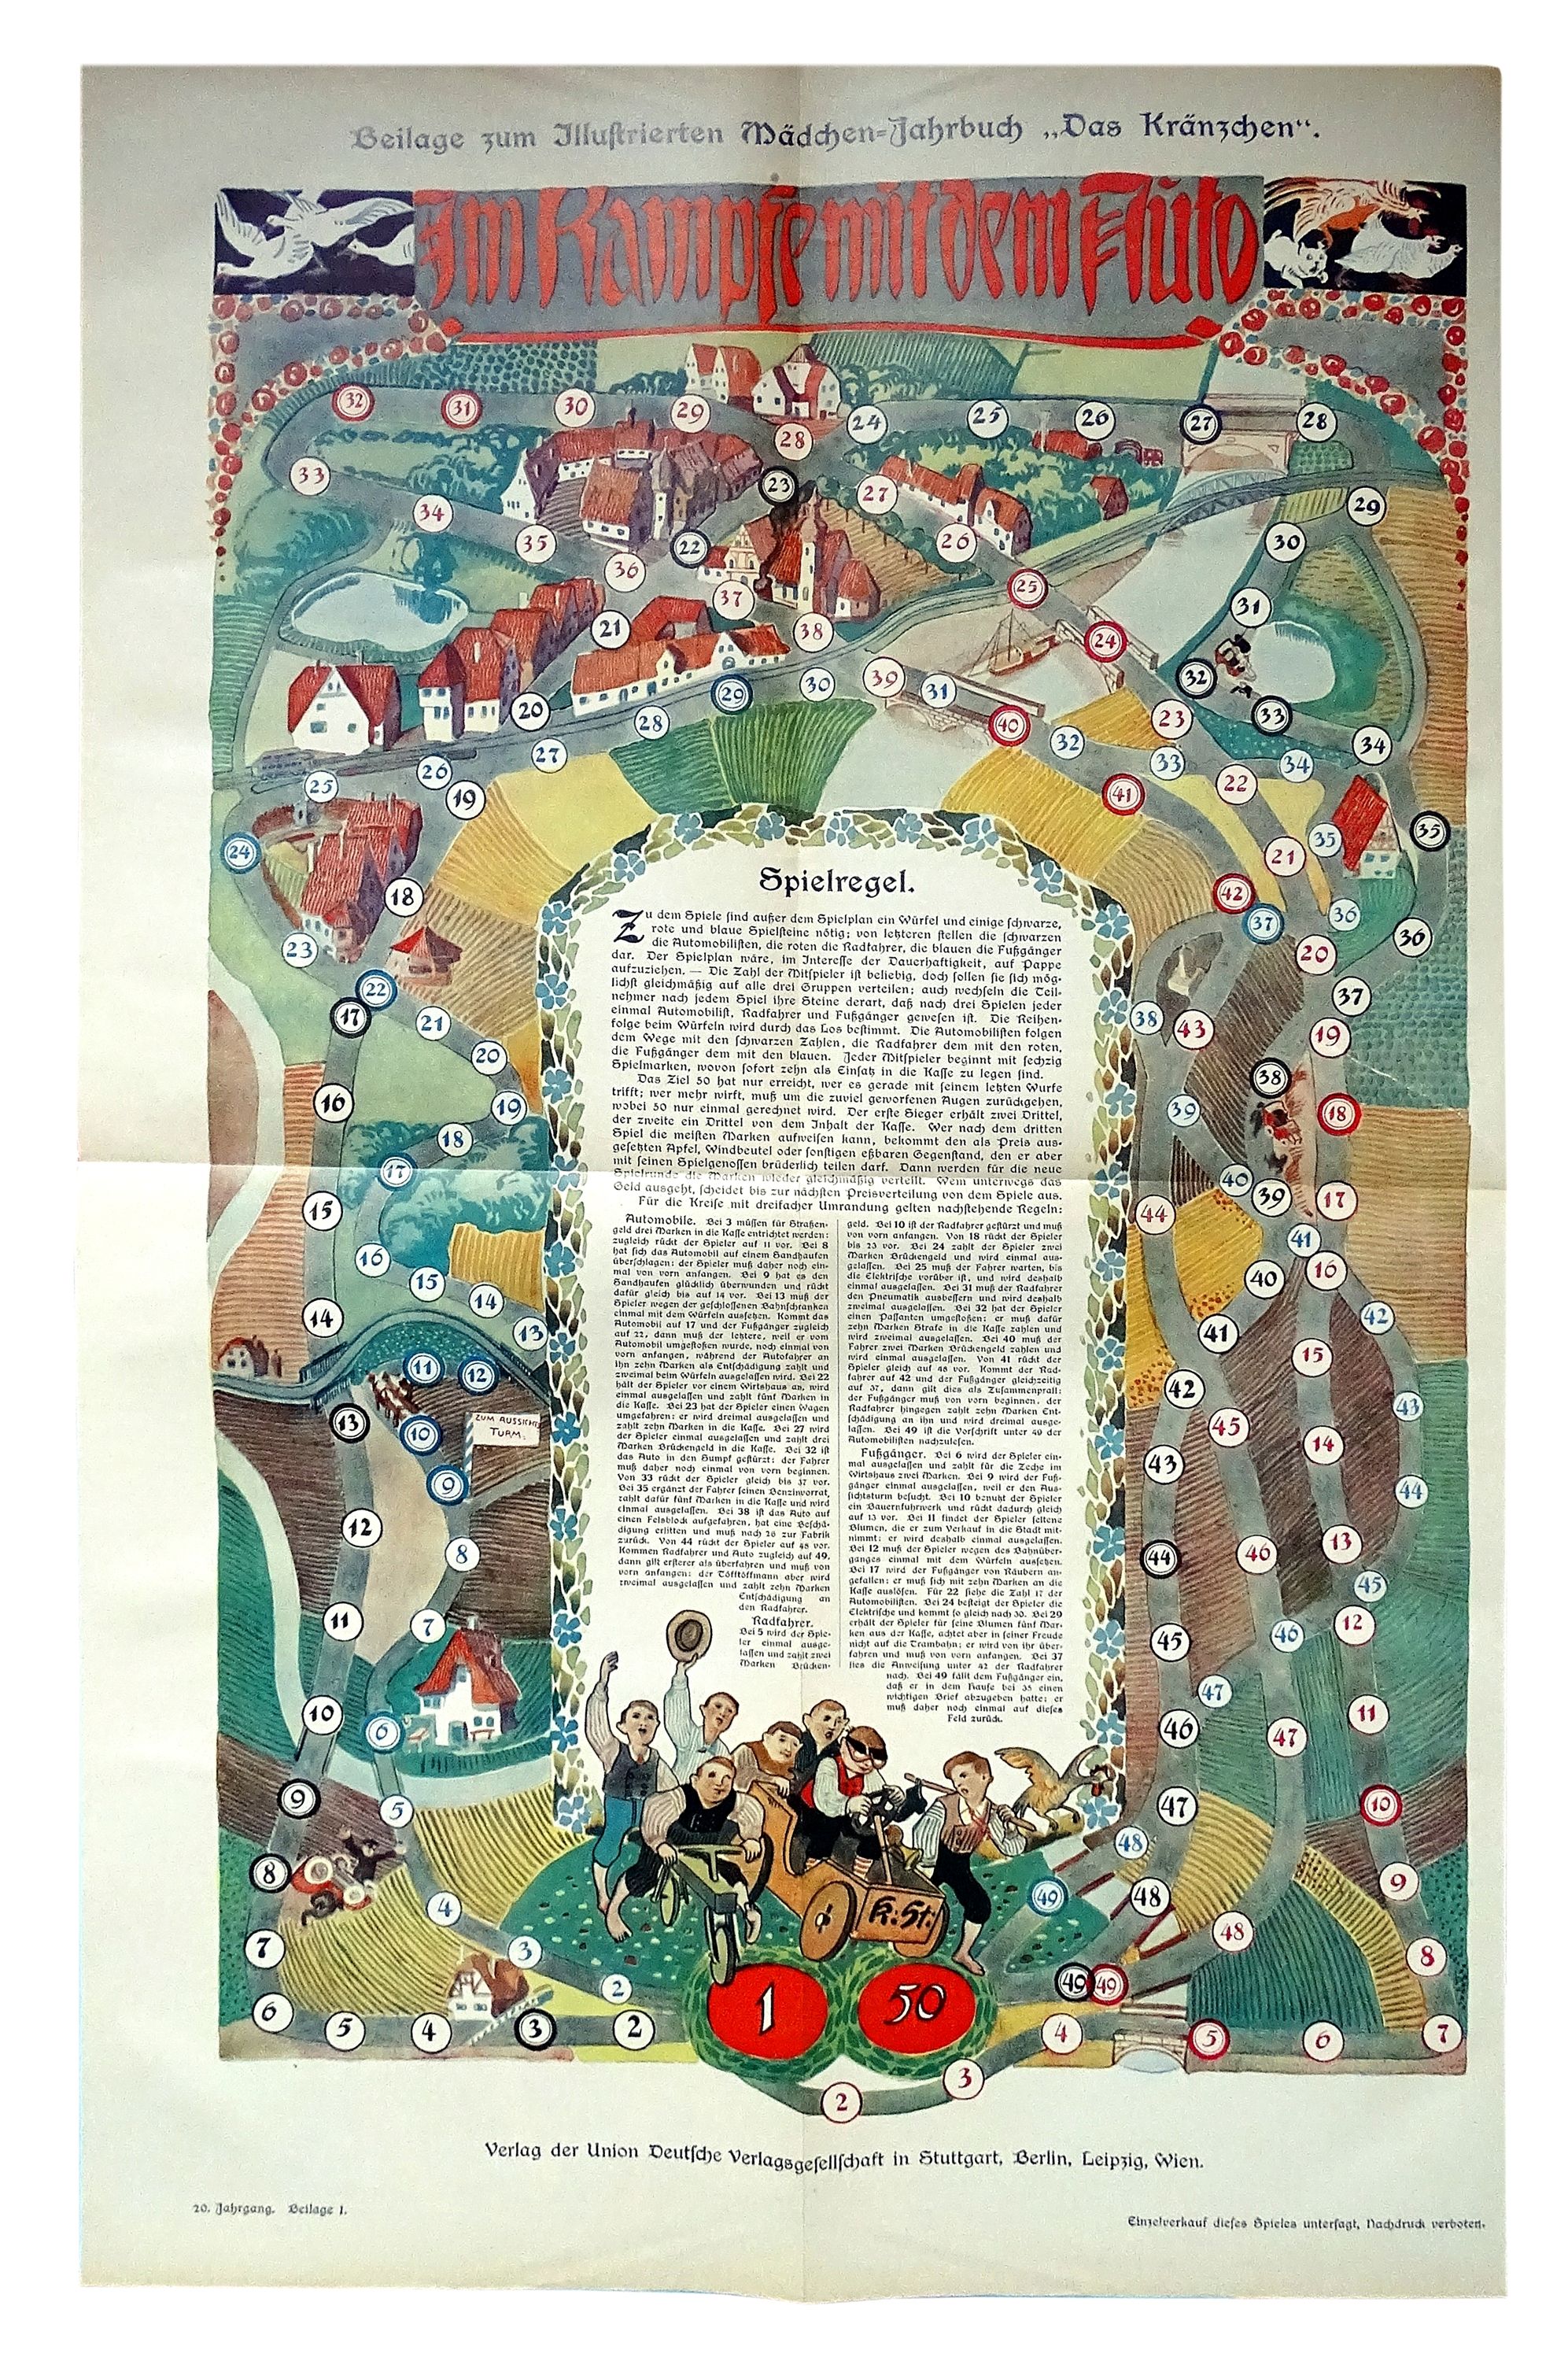 Beilage zum Illustrierten Mädchen-Jahrbuch „Das Kränzchen“.
Im Kampfe mit dem Auto
Spielregel.
Zu dem Spiele sind außer dem Spielplan ein Würfel und einige schwarze,
rote und blaue Spielsteine nötig; von letzteren stellen die schwarzen
die Automobilisten, die roten die Radfahrer, die blauen die Fußgänger
dar. Der Spielplan wäre, im Interesse der Dauerhaftigkeit, auf Pappe
aufzuziehen. — Die Zahl der Mitspieler ist beliebig, doch sollen sie sich mög-
lichst gleichmäßig auf alle drei Gruppen verteilen; auch wechseln die Teil-
nehmer nach jedem Spiel ihre Steine derart, daß nach drei Spielen jeder
einmal Automobilist, Radfahrer und Fußgänger gewesen ist. Die Reihen-
folge beim Würfeln wird durch das Los bestimmt. Die Automobilisten folgen
dem Wege mit den schwarzen Zahlen, die Radfahrer dem mit den roten,
die Fußgänger dem mit den blauen. Jeder Mitspieler beginnt mit sechzig
Spielmarken, wovon sofort zehn als Einsatz in die Kasse zu legen sind.
Das Ziel 50 hat nur erreicht, wer es gerade mit seinem letzten Wurfe
trifft; wer mehr wirft, muß um die zuviel geworfenen Augen zurückgehen,
wobei 50 nur einmal gerechnet wird. Der erste Sieger erhält zwei Drittel,
der zweite ein Drittel von dem Inhalt der Kasse. Wer nach dem dritten
Spiel die meisten Marken aufweisen kann, bekommt den als Preis aus-
gesetzten Apfel, Windbeutel oder sonstigen eßbaren Gegenstand, den er aber
mit seinen Spielgenossen brüderlich teilen darf. Dann werden für die neue
Spielrunde die Marken wieder gleichmäßig verteilt. Wem unterwegs das
Geld ausgeht, scheidet bis zur nächsten Preisverteilung von dem Spiele aus.
Für die Kreise mit dreifacher Umrandung gelten nachstehende Regeln:
Automobile. Bei 3 müssen für Straßen-
geld drei Marken in die Kasse entrichtet werden;
zugleich rückt der Spieler auf 11 vor. Bei 8
hat sich das Automobil auf einem Sandhaufen
überschlagen; der Spieler muß daher noch ein-
mal von vorn anfangen. Bei 9 hat es den
Sandhaufen glücklich überwunden und rückt
dafür gleich bis auf 14 vor. Bei 13 muß der
Spieler wegen der geschlossenen Bahnschranken
einmal mit dem Würfeln aussetzen. Kommt das
Automobil auf 17 und der Fußgänger zugleich
auf 22, dann muß der letztere, weil er vom
Automobil umgestoßen wurde, noch einmal von
vorn anfangen, während der Autofahrer an
ihn zehn Marken als Entschädigung zahlt und
zweimal beim Würfeln ausgelassen wird. Bei 22
hält der Spieler vor einem Wirtshaus an, wird
einmal ausgelassen und zahlt fünf Marken in
die Kasse. Bei 23 hat der Spieler einen Wagen
umgefahren; er wird dreimal ausgelassen und
zahlt zehn Marken in die Kasse. Bei 27 wird
der Spieler einmal ausgelassen und zahlt drei
Marken Brückengeld in die Kasse. Bei 32 ist
das Auto in den Sumpf gestürzt; der Fahrer
muß daher noch einmal von vorn beginnen.
Von 33 rückt der Spieler gleich bis 37 vor.
Bei 35 ergänzt der Fahrer seinen Benzinvorrat,
zahlt dafür fünf Marken in die Kasse und wird
einmal ausgelassen. Bei 38 ist das Auto auf
einen Felsblock aufgefahren, hat eine Beschä-
digung erlitten und muß nach 26 zur Fabrik
zurück. Von 44 rückt der Spieler auf 48 vor.
Kommen Radfahrer und Auto zugleich auf 49,
dann gilt ersterer als überfahren und muß von
vorn anfangen; der Töfftöffmann aber wird
zweimal ausgelassen und zahlt zehn Marken
Entschädigung an
den Radfahrer.
Radfahrer.
Bei 5 wird der Spie-
ler einmal ausge-
lassen und zahlt zwei
Marken Brücken-
geld. Bei 10 ist der Radfahrer gestürzt und muß
von vorn anfangen. Von 18 rückt der Spieler
bis 23 vor. Bei 24 zahlt der Spieler zwei
Marken Brückengeld und wird einmal aus-
gelassen. Bei 25 muß der Fahrer warten, bis
die Elektrische vorüber ist, und wird deshalb
einmal ausgelassen. Bei 31 muß der Radfahrer
den Pneumatik ausbessern und wird deshalb
zweimal ausgelassen. Bei 32 hat der Spieler
einen Passanten umgestoßen; er muß dafür
zehn Marken Strafe in die Kasse zahlen und
wird zweimal ausgelassen. Bei 40 muß der
Fahrer zwei Marken Brückengeld zahlen und
wird einmal ausgelassen. Von 41 rückt der
Spieler gleich auf 48 vor. Kommt der Rad-
fahrer auf 42 und der Fußgänger gleichzeitig
auf 37, dann gilt dies als Zusammenprall;
der Fußgänger muß von vorn beginnen, der
Radfahrer hingegen zahlt zehn Marken Ent-
schädigung an ihn und wird dreimal ausge-
lassen. Bei 49 ist die Vorschrift unter 49 der
Automobilisten nachzulesen.
Fußgänger. Bei 6 wird der Spieler ein-
mal ausgelassen und zahlt für die Zeche im
Wirtshaus zwei Marken. Bei 9 wird der Fuß-
gänger einmal ausgelassen, weil er den Aus-
sichtsturm besucht. Bei 10 benutzt der Spieler
ein Bauernfuhrwerk und rückt dadurch gleich
auf 13 vor. Bei 11 findet der Spieler seltene
Blumen, die er zum Verkauf in die Stadt mit-
nimmt; er wird deshalb einmal ausgelassen.
Bei 12 muß der Spieler wegen des Bahnüber-
ganges einmal mit dem Würfeln aussetzen.
Bei 17 wird der Fußgänger von Räubern an-
gefallen; er muß sich mit zehn Marken an die
Kasse auslösen. Für 22 siehe die Zahl 17 der
Automobilisten. Bei 24 besteigt der Spieler die
Elektrische und kommt so gleich nach 30. Bei 29
erhält der Spieler für seine Blumen fünf Mar-
ken aus der Kasse, achtet aber in seiner Freude
nicht auf die Trambahn; er wird von ihr über-
fahren und muß von vorn anfangen. Bei 37
lies die Anweisung unter 42 der Radfahrer
nach. Bei 49 fällt dem Fußgänger ein,
daß er in dem Hause bei 35 einen
wichtigen Brief abzugeben hatte; er
muß daher noch einmal auf dieses
Feld zurück.
32 31 30 29 28 24 25 26 27 28
33 34 35 36 37 38 23 22 27 26 25 24 29 30 31 32 33 34
21 20 19 25 26 27 28 29 30 39 31 40 32 33 23 34 22
24 18 23 22 17 21 20 41 42 37 21 35 35 36 36 20
16 19 18 17 15 16 15 14 14 13 38 43 37 19 38 18 39
11 12 13 10 9
ZUM AUSSICHTS
TURM.
12 8 11 7 10 6 9 5 8 4 7 3 2 6 5 4 3 2
40 39 17 44 41 16 40 42 41 15 42 45 43 14 43 44
44 46 13 45 45 46 12 47 46 47 11 47 10 48 9
K. St.
49 48 48 8 49 49
1 50
4 5 6 7
2 3
Verlag der Union Deutsche Verlagsgesellschaft in Stuttgart, Berlin, Leipzig, Wien.
20. Jahrgang. Beilage 1.
Einzelverkauf dieses Spieles untersagt, Nachdruck verboten.